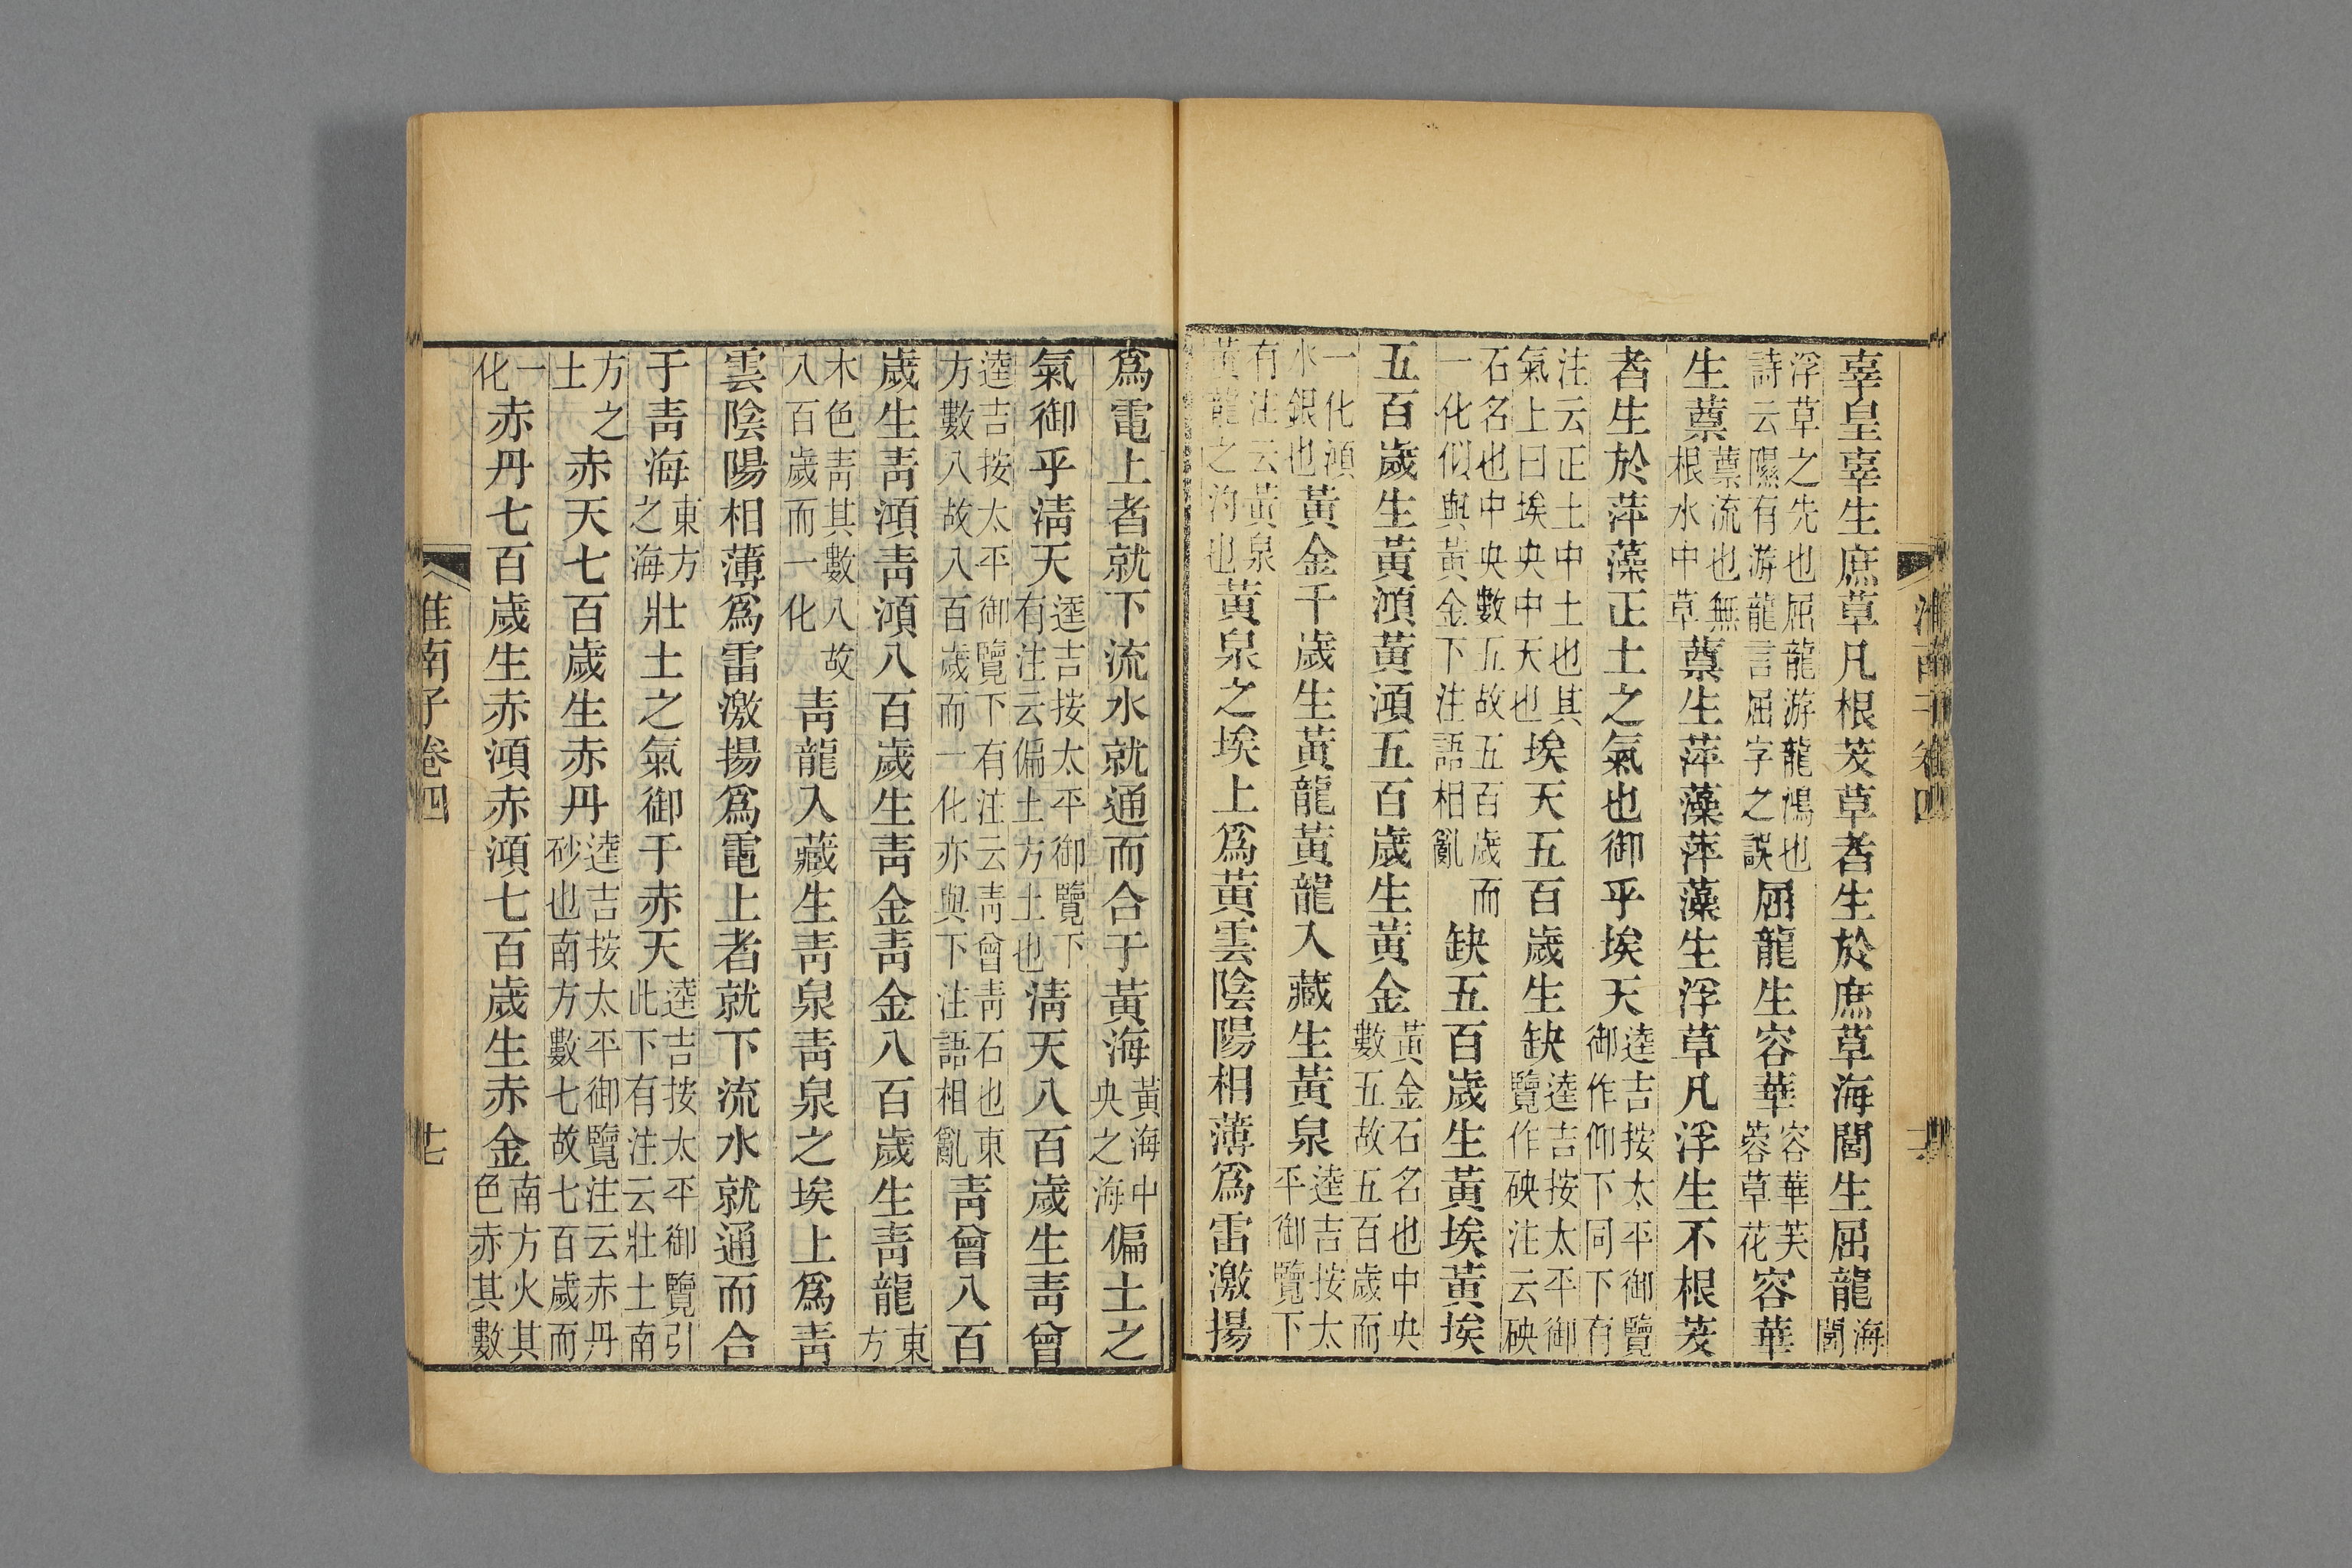 淮南子卷四
辜皇辜生庶草凡根茇草者生於庶草海閭生屈龍海閭
浮草之先也屈龍游龍鴻也詩云隰有游龍言屈字之誤屈龍生容華容華芙蓉草花容華
生蔈蔈流也無根水中草蔈生萍藻萍藻生浮草凡浮生不根茇
者生於萍藻正土之氣也御乎埃天逵吉按太平御覽御作仰下同下有
注云正土中土也其氣上曰埃央中天也埃天五百歲生缺逵吉按太平御覽作砄注云砄
石名也中央數五故五百歲而一化似與黃金下注語相亂缺五百歲生黃埃黃埃
五百歲生黃澒黃澒五百歲生黃金黃金石名也中央數五故五百歲而
一化澒水銀也黃金千歲生黃龍黃龍入藏生黃泉逵吉按太平御覽下
有注云黃泉黃龍之汋也黃泉之埃上爲黃雲陰陽相薄爲雷激揚
爲電上者就下流水就通而合于黃海黃海中央之海偏土之
氣御乎清天逵吉按太平御覽下有注云偏土方土也清天八百歲生青曾
逵吉按太平御覽下有注云青曾青石也東方數八故八百歲而一化亦與下注語相亂青曾八百
歲生青澒青澒八百歲生青金青金八百歲生青龍東方
木色青其數八故八百歲而一化青龍入藏生青泉青泉之埃上爲青
雲陰陽相薄爲雷激揚爲電上者就下流水就通而合
于青海東方之海壯土之氣御于赤天逵吉按太平御覽引此下有注云壯土南
方之土赤天七百歲生赤丹逵吉按太平御覽注云赤丹砂也南方數七故七百歲而
一化赤丹七百歲生赤澒赤澒七百歲生赤金南方火其色赤其數
淮南子卷四